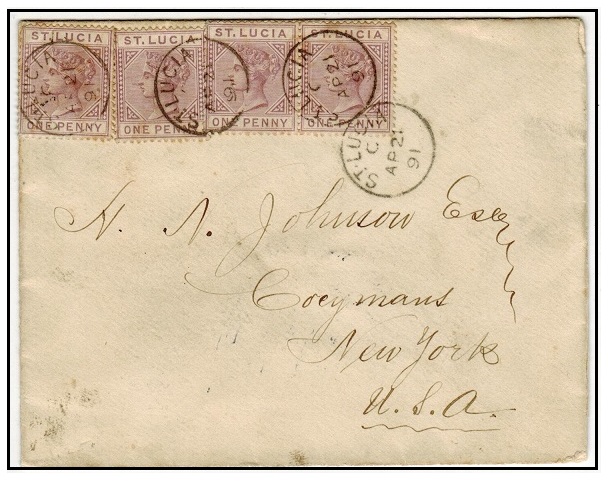 ST. LUCIA ST. LUCIA ST. LUCIA ST. LUCIA
ONE PENNY ONE PENNY ONE PENNY ONE PENNY
ST. LUCIA
AP 21
91
ST. LUCIA
C
AP 21
91
ST. LUCIA
C
AP 21
91
ST. LUCIA
C
AP 21
91
H. N. Johnson Esq
Coeymans
New York
U.S.A.